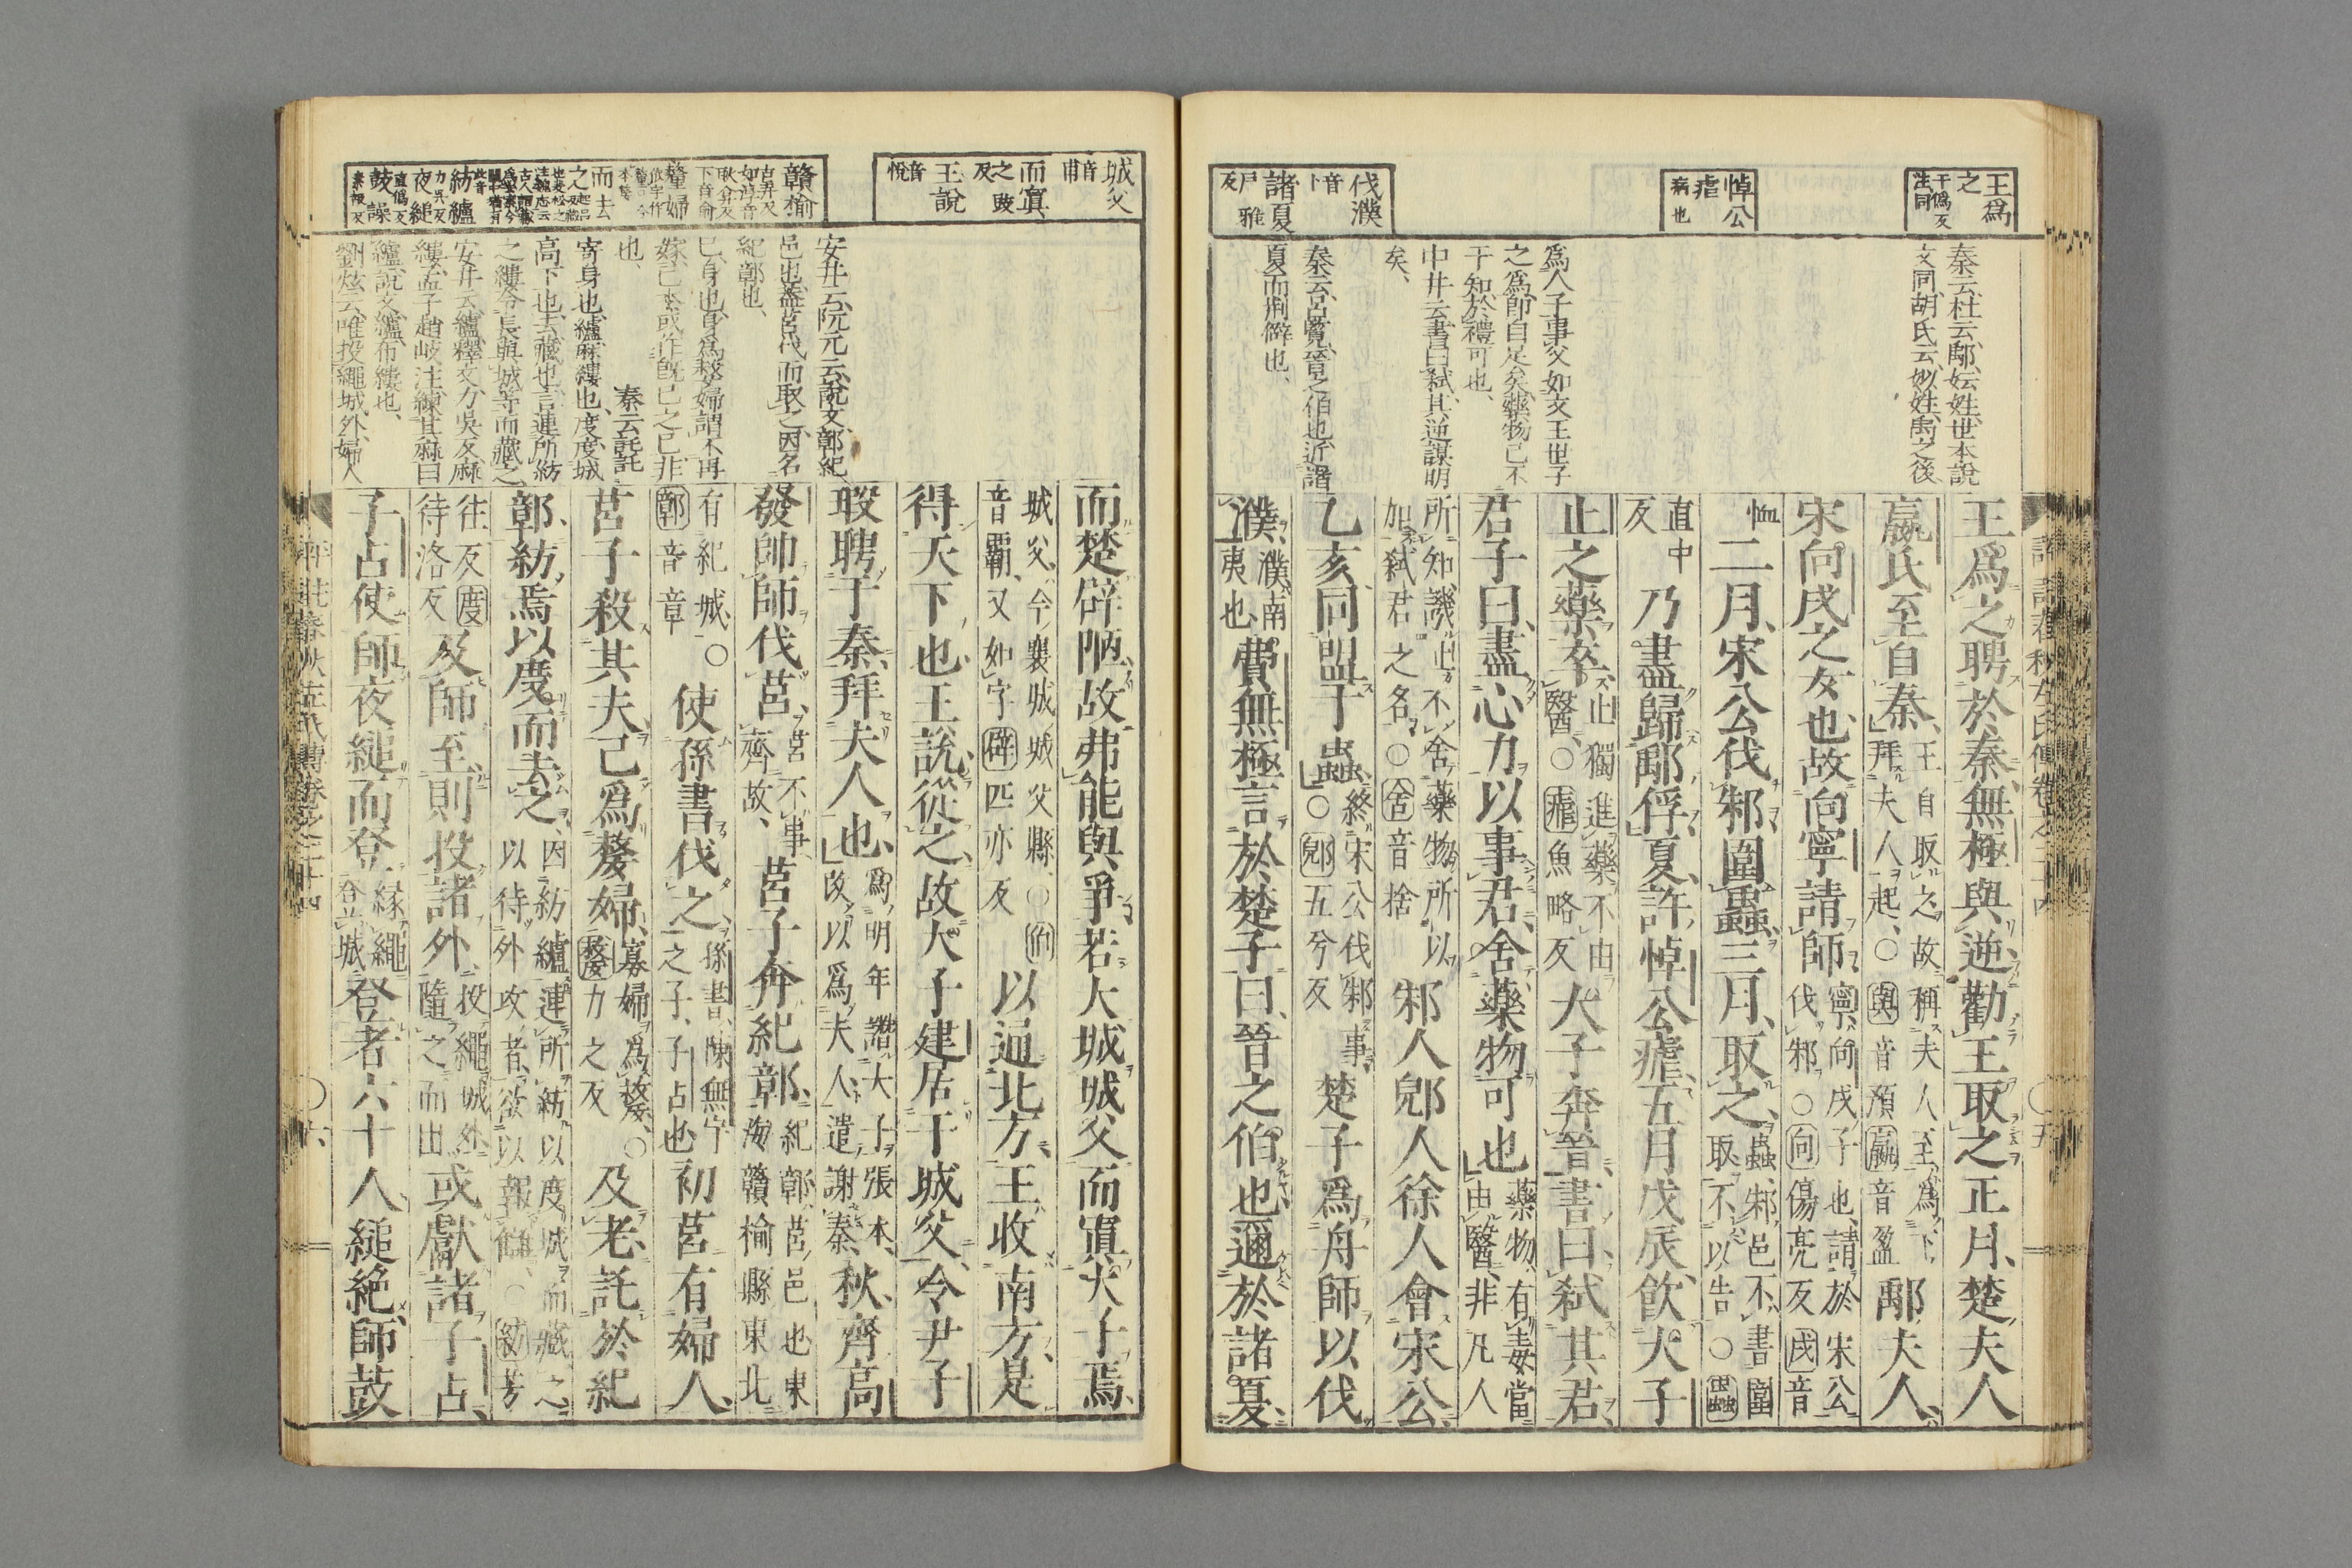 王爲
之
干僞反
注同
悼公
瘧
病也
伐濮
音卜
諸夏
尸雅反
秦云杜云鄅妘姓世本説
文同胡氏云妙姓禹之後
爲人子事父如文王世子
之爲即自足矣藥物己不
干知於禮可也
中井云書曰弑其逆謀明
矣
秦云呂覽晉之伯也近諸
夏而荆僻也
王爲之聘於秦無極與逆勸王取之正月楚夫人
嬴氏至自秦 王自取之故稱夫人至爲下
拜夫人起○與音預嬴音盈 鄅夫人
宋向戌之女也故向寧請師 寧向戌子也請於宋公
伐邾○向傷亮反戌音
恤 二月宋公伐邾圍蟲三月取之 蟲邾邑不書圍
取不以告○蟲
直中
反 乃盡歸鄅俘夏許悼公瘧五月戊辰飲大子
止之藥卒 止獨進藥不由
醫○瘧魚略反 大子奔晉書曰弑其君
君子曰盡心力以事君舍藥物可也 藥物有毒當
由醫非凡人
所知譏止不舍藥物所以
加弑君之名○舍音捨 邾人郳人徐人會宋公
乙亥同盟于蟲 終宋公伐邾事
○郳五兮反 楚子爲舟師以伐
濮 濮南
夷也 費無極言於楚子曰晉之伯也邇於諸夏
城父
音甫
而寘
之豉反
王說
音悅
贛榆
古弄反
如淳音
耿弇反
下音俞
嫠婦
而去
紡纑
力吳反
夜縋
直僞反
鼓譟
素報反
安井云阮元云説文鄣紀
邑也蓋莒伐而取之因名
紀鄣也
已身也身爲嫠婦謂不再
嫁已本或作既已之已非
也
秦云託託
寄身也纑麻縷也度度城
高下也去藏也言連所紡
之縷令長與城等而藏之
安井云纑釋文力吳反麻
縷孟子趙岐注練其麻曰
纑説文纑布縷也
劉炫云唯投繩城外婦人
而楚辟陋故弗能與爭若大城城父而寘大子焉
城父今襄城城父縣○伯
音霸又如字辟匹亦反 以通北方王收南方是
得天下也王說從之故大子建居于城父令尹子
瑕聘于秦拜夫人也 爲明年譖大子張本
改以爲夫人遣謝秦 秋齊高
發帥師伐莒 莒不事
齊故 莒子奔紀鄣 紀鄣莒邑也東
海贛榆縣東北
有紀城○
鄣音章 使孫書伐之 孫書陳無宇
之子子占也 初莒有婦人
莒子殺其夫已爲嫠婦 寡婦爲嫠○
嫠力之反 及老託於紀
鄣紡焉以度而去之 因紡纑連所紡以度城而藏之
以待外攻者欲以報讎○紡芳
往反度
待洛反 及師至則投諸外 投繩城外
隨之而出 或獻諸子占
子占使師夜縋而登 緣繩
登城 登者六十人縋絶師鼓